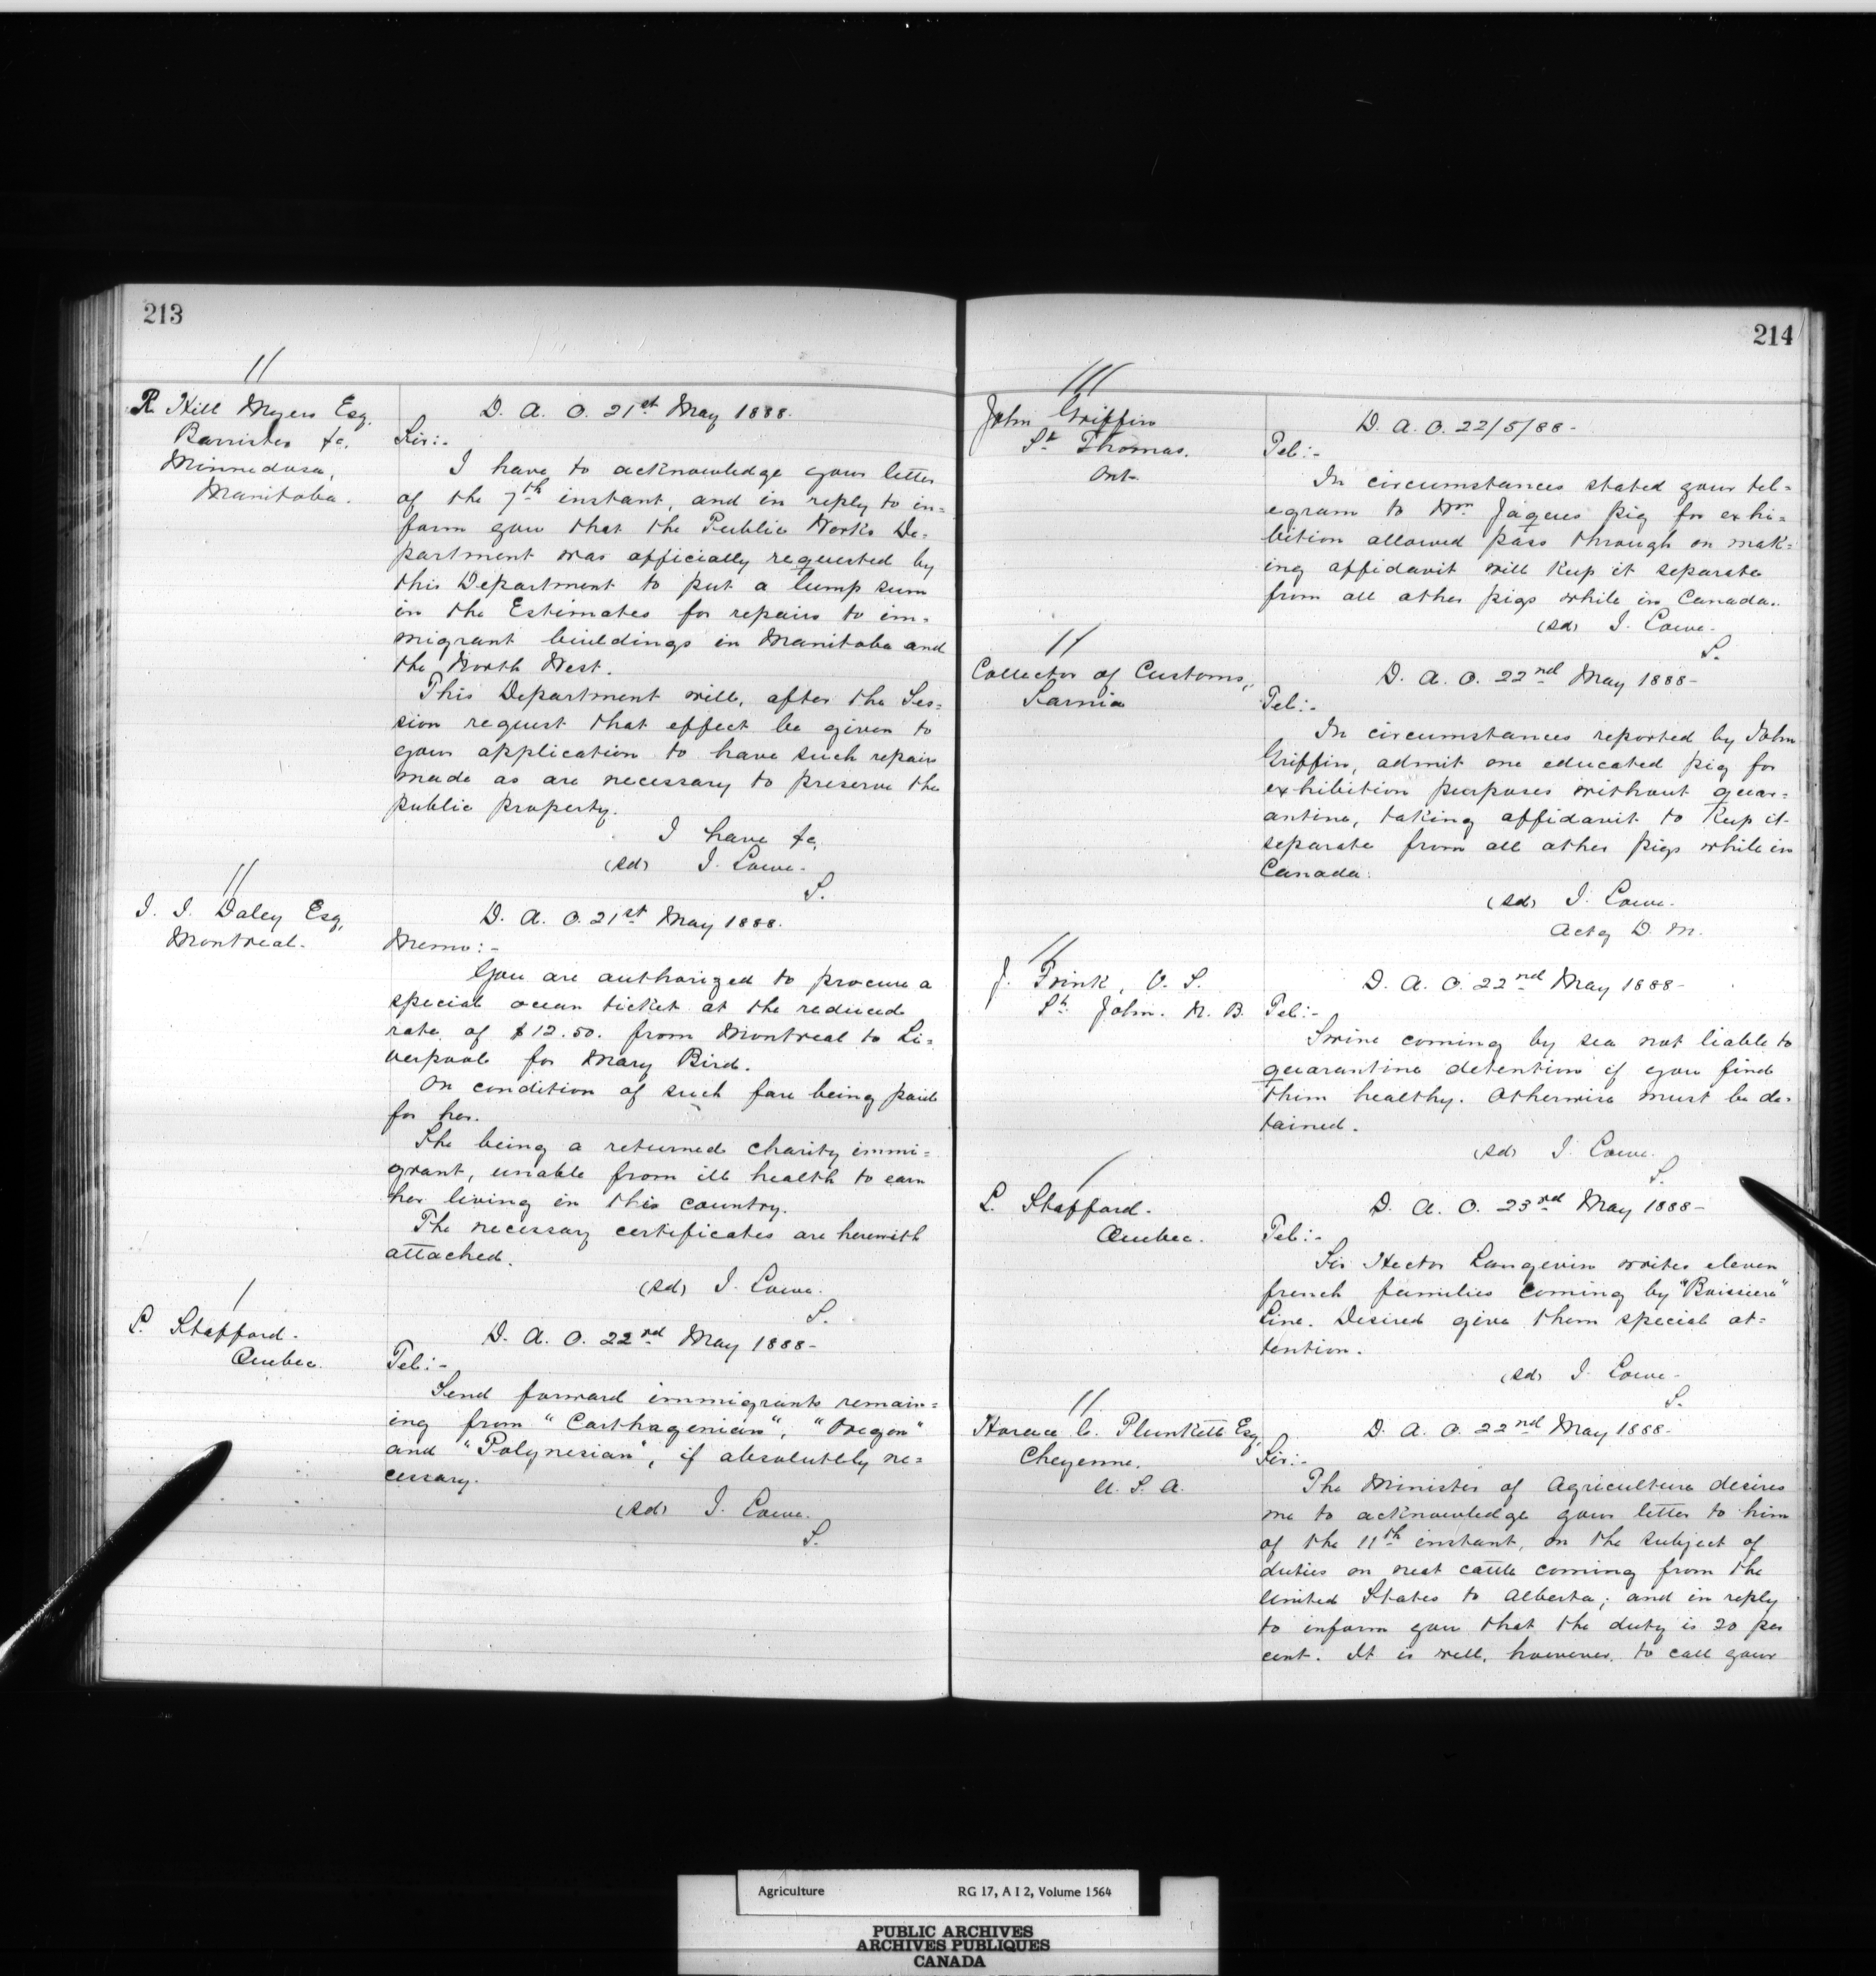 213
R. Hill Myers Esq.
Barrister &c.
Minnedosa,
Manitoba.
D. A. O. 21st May 1888.
Sir:-
I have to acknowledge your letter
of the 7th instant, and in reply to in=
form you that the Public Works De=
partment was officially requested by
this Department to put a lump sum
in the Estimates for repairs to im=
migrant buildings in Manitoba and
the North West.
This Department will, after the Ses=
sion request that effect be given to
your application to have such repairs
made as are necessary to preserve the
public property.
I have &c,
(sd) J. Lowe.
S.
J. J. Daley Esq,
Montreal.
D. A. O. 21st May 1888.
Memo:-
You are authorized to procure a
special ocean ticket at the reduced
rate of $12.50. from Montreal to Li=
verpool for Mary Bird.
On condition of such fare being paid
for her.
She being a returned charity immi=
grant, unable from ill health to earn
her living in this country.
The necessary certificates are herewith
attached.
(sd) J. Lowe.
S.
L. Stafford.
Quebec.
D. A. O. 22nd May 1888-
Tel:-
Send forward immigrants remain=
ing from "Carthagenian", "Oregon"
and "Polynesian", if absolutely ne=
cessary.
(sd) J. Lowe.
S.
214
John Griffin
St Thomas.
Ont.
D. A. O. 22/5/88-
Tel:-
In circumstances stated your tel=
egram to Wm Jaques pig for exhi=
bition allowed pass through on mak=
ing affidavit will keep it separate
from all other pigs while in Canada.
(sd) J. Lowe.
S.
Collector of Customs,
Sarnia
D. A. O. 22nd May 1888-
Tel:-
In circumstances reported by John
Griffin, admit one educated pig for
exhibition purposes without quar=
antine, taking affidavit to keep it
separate from all other pigs while in
Canada.
(sd) J. Lowe.
Actg D. M.
J. Frink, V. S.
St. John. N. B.
D. A. O. 22nd May 1888-
Tel:-
Swine coming by sea not liable to
quarantine detention if you find
them healthy. Otherwise must be de=
tained.
(sd) J. Lowe.
S.
L. Stafford.
Quebec.
D. A. O. 23rd May 1888-
Tel:-
Sir Hector Langevin writes eleven
french families coming by "Boissiere"
Line. Desired give them special at=
tention.
(sd) J. Lowe.
S.
Horace C. Plunkett Esq,
Cheyenne.
U. S. A.
D. A. O. 22nd May 1888.
Sir:-
The Minister of Agriculture desires
me to acknowledge your letter to him
of the 11th instant, on the subject of
duties on neat cattle coming from the
United States to Alberta; and in reply
to inform you that the duty is 20 per
cent. It is well, however, to call your
Agriculture RG 17, A I 2, Volume 1564
PUBLIC ARCHIVES
ARCHIVES PUBLIQUES
CANADA